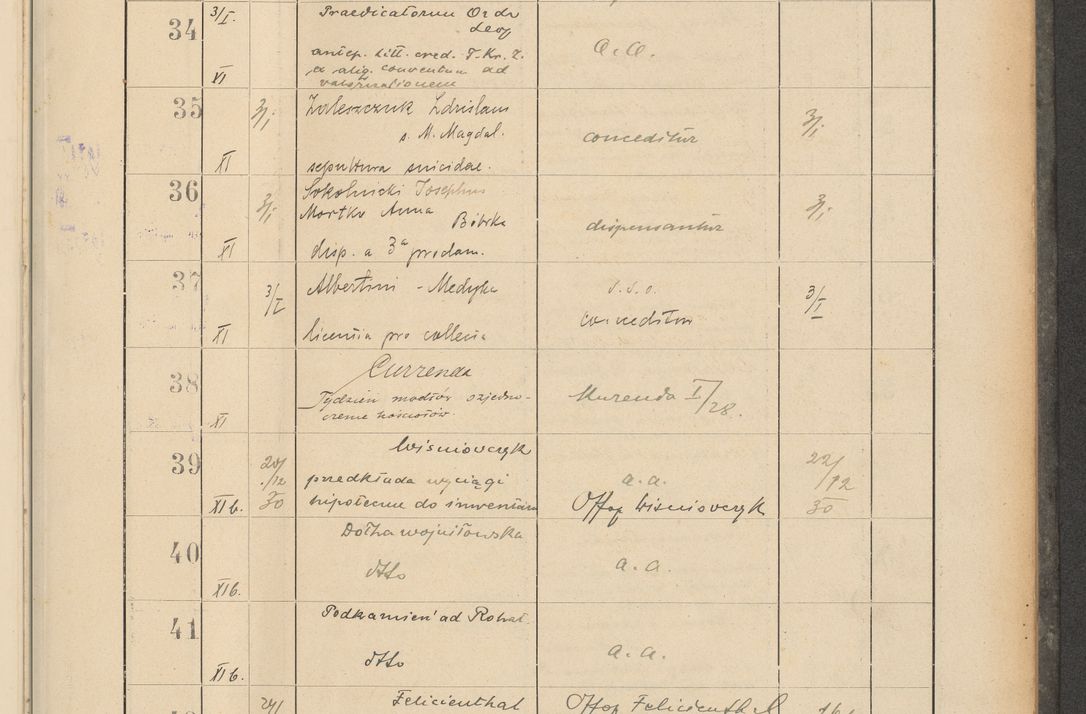 34 3/I. Praedicatorum Ord
Leop
antep. litt. cred. T. Kr. Z. a.a.
XI a aliq. conventum ad
valorisationem
35 3/I Zaleszczuk Zdzislaus 3/I
s. M. Magdal. conceditur
XI sepultura suicidae.
36 3/I Sokolnicki Josephus 3/I
Mortko Anna
Bóbrka dispensantur
XI disp. a 3a prodam.
37 3/I Albertini - Medyka 3/I
conceditur
XI licentia pro collecta
38 Currenda
Tydzień modłów o zjedno- Kurenda I/28.
XI czenie kościołów.
39 Wiśniowczyk
20/12 30 przedkłada wyciągi a.a. 22/12 30
XI b. hipoteczne do inwentarza Offop Wiśniowczyk
40 Dołha wojniłowska
dtto a.a.
XI b.
41 Podkamień ad Rohat.
dtto a.a.
XI b.
Felicienthal Offop Felicienthal